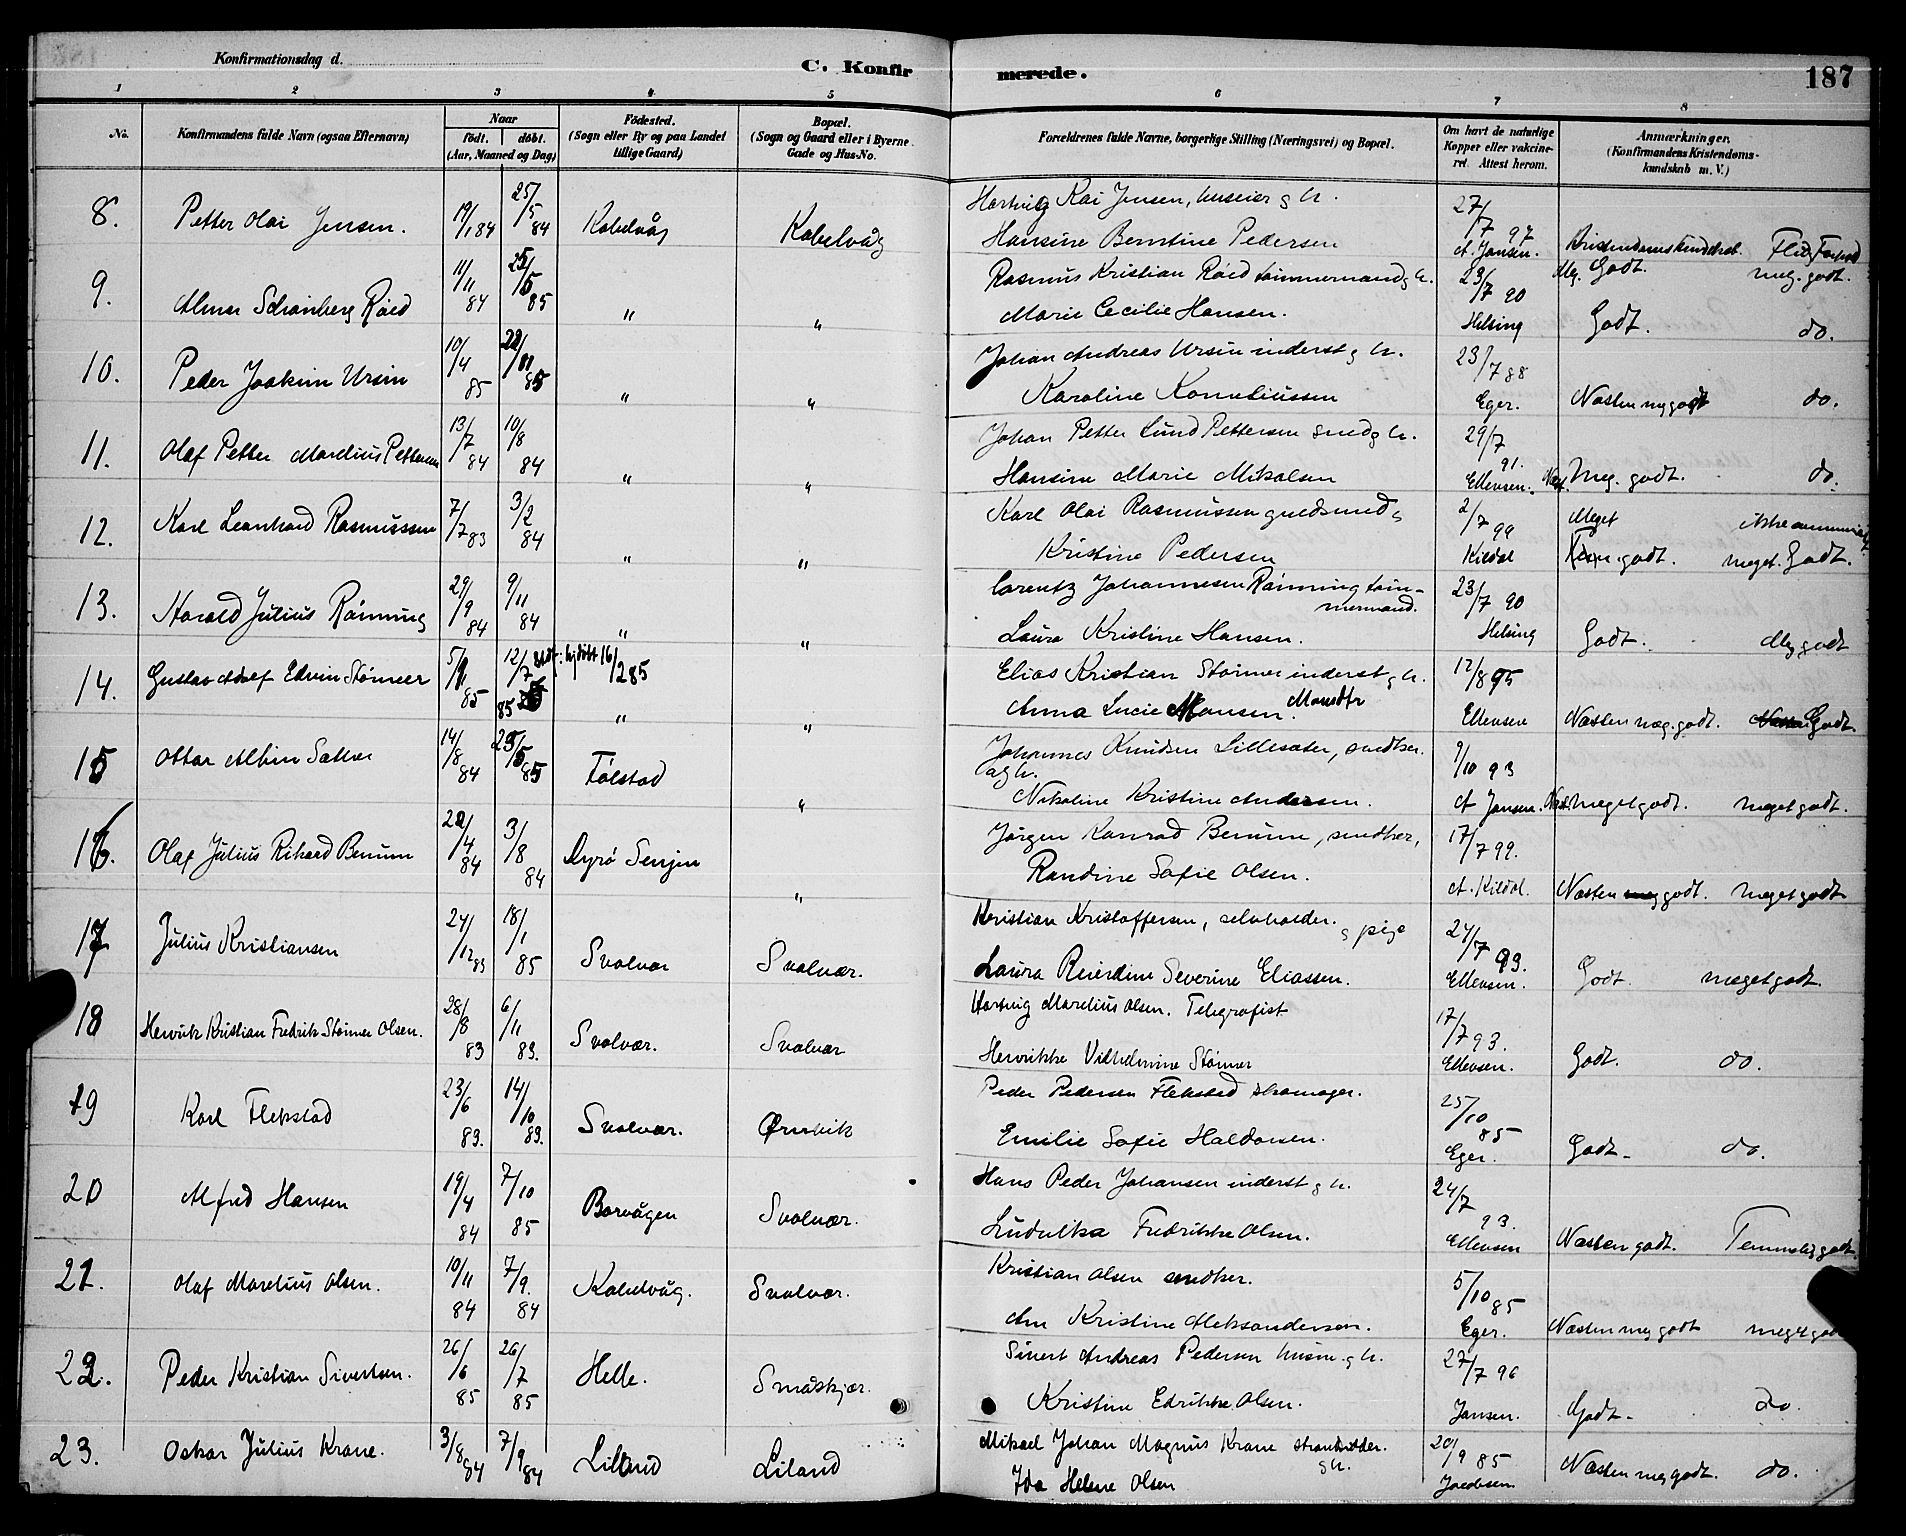 Konfirmationsdag d.
C. Konfirmerede.
187
1 2 3 4 5 6 7 8
No. Konfirmandens fulde Navn (ogsaa Efternavn) Naar födt. döbt. (Aar, Maaned og Dag) Födested. (Sogn eller By og paa Landet tillige Gaard) Bopæl. (Sogn og Gaard eller i Byerne Gade og Hus-No. Forældrenes fulde Navne, borgerlige Stilling (Næringsvei) og Bopæl. Om havt de naturlige Kopper eller vakcineret. Attest herom. Anmærkninger. (Konfirmandens Kristendomskundskab m. V.)
8. Petter Olai Jensen. 19/1 84 25/5 84 Kabelvåg Kabelvåg Hartvig Kai Jensen, huseier g h. 27/7 97
Hansine Berntine Pedersen A. Jansen. Kristendomskundskab. Flid
Mg. Godt. meg. godt.
9. Schrønberg Røed 11/11 84 25/5 85 " " Rasmus Kristian Röed tömmermand g h. 23/7 90
Marie Cecilie Hansen. Helsing Godt. do.
10. Peder Joakim Ursin 10/4 85 85 " " Johan Andreas Ursin inderst g h. 23/7 88
Karoline Korneliussen Eger. Næsten meg godt do.
11. Olaf Petter Marelius Pettersen 13/7 84 10/8 84 " " Johan Petter Lund Pettersen smed g h. 29/7 91.
Hansine Marie Mikalsen Ellevsen. Næst. Meg. godt. do.
12. Karl Leonhard Rasmussen 7/7 83 3/2 84 " " Karl Olai Rasmussen guldsmed g 2/7 99 Meget
Kristine Pedersen Kildal godt. meget. Godt.
13. Harald Julius Rönning 29/9 84 9/11 84 " " Lorentz Johannesen Rönning tömmermand. 23/7 90
Laura Kristine Hansen. Helsing Godt. Meg godt
14. Gustav Adolf Edvin Störmer 5/1 85 12/7 85 hjdöbt 16/2 85 " " Elias Kristian Störmer inderst g h. 12/8 95
Anna Lucie Hansen. Ellevsen Næsten meg. godt. Godt.
15 Ottar Albin Sæther 14/8 84 25/5 85 Følstad " Johannes Knudsen Lillesæter, snedker. og h. 9/10 93
Nikoline Kristine Andersen. A Jansen. Næst. Meget godt. meget godt.
16. Olaf Julius Rikard Benum 4 84 3/8 84 Dyrö Senjen " Jörgen Konrad Benum, snedker, 17/7 99.
Randine Sofie Olsen. A. Kildal. Næsten godt. meget godt
17 Julius Kristiansen 24/12 83 18/1 85 Svolvær Svolvær. Kristian Kristoffersen, selvholder. g pige 24/7 93.
Laura Reierdine Severine Eliassen. Ellevsen. Godt. meget godt.
18 Henrik Kristian Fredrik Störmer Olsen. 28/8 83 6/11 83. Svolvær. Svolvær Hartvig Marelius Olsen. Telegrafist 17/7 93.
Henrikke Vilhelmine Störmer Ellevsen. Godt. do.
19 Karl Flekstad 23/6 83. 14/10 83. Svolvær. Ørnvik Peder Pedersen Flekstad skomager. 25/10 85
Emilie Sofie Haldorsen. Eger. Godt. do.
20 Alfred Hansen 19/4 84 7/10 85 Borvågen Svolvær. Hans Peder Johansen inderst g h. 24/7 93.
Fredrikke Olsen. Ellevsen Næsten godt. Temmelig godt
21. Olaf Marelius Olsen. 10/11 84 7/9. 84 Kabelvåg. Svolvær. Kristian Olsen snedker. 5/10 85
Kristine Aleksandersen. Eger. Næsten meg godt meget godt
22. Peder Kristian Sivertsen. 26/6 85 26/7 85 Helle. Småskjær. Sivert Andreas Pedersen husm. g h. 27/7 96
Kristine Edrikke Olsen. Jansen. Godt. do.
23. Oskar Julius Krane. 3/8 84 7/9 84 Liland Liland Mikael Johan Magnus Krane strandsidder. g h. 20/9 85
Ida Helene Olsen Jacobsen Næsten meg godt. do.